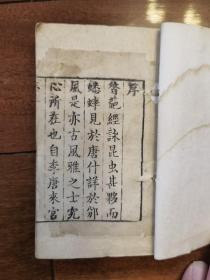 序
葩經詠昆虫甚夥而
蟋蟀見於唐什詳於豳
風是亦古風雅之士究
心所在也自李唐來官